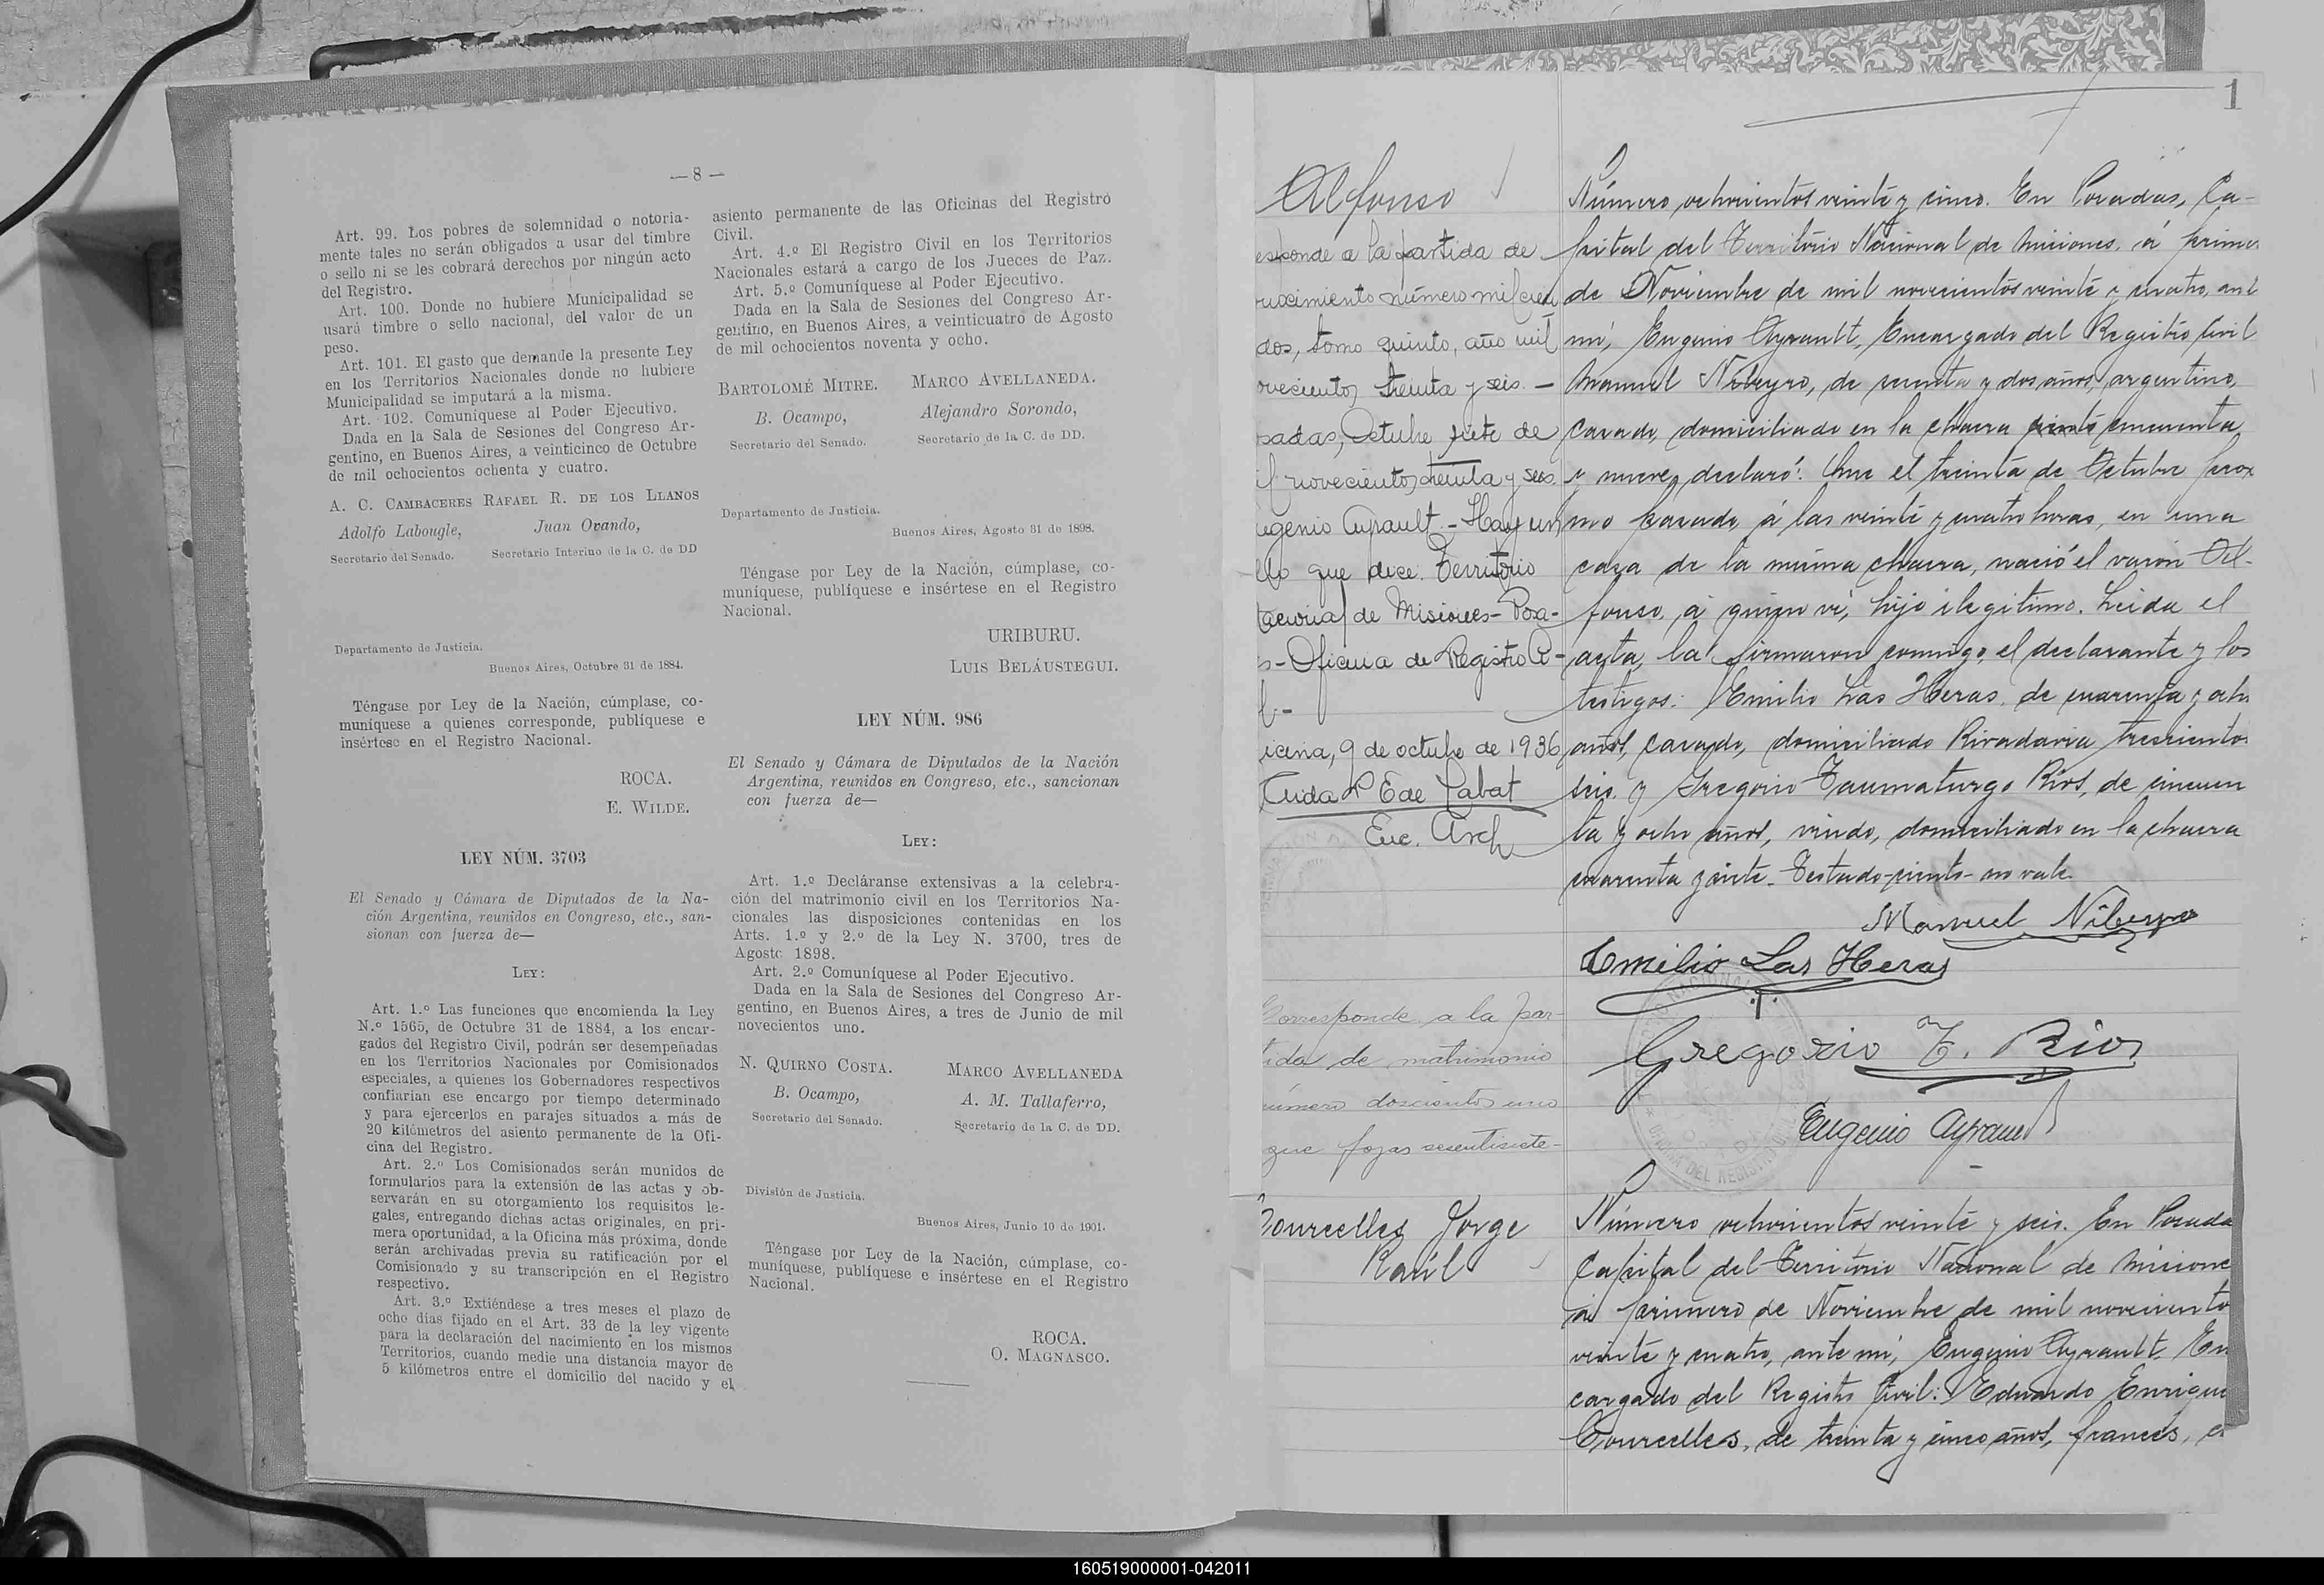 — 8 —
Art. 99. Los pobres de solemnidad o notoria-
mente tales no serán obligados a usar del timbre
o sello ni se les cobrará derechos por ningún acto
del Registro.
Art. 100. Donde no hubiere Municipalidad se
usará timbre o sello nacional, del valor de un
peso.
Art. 101. El gasto que demande la presente Ley
en los Territorios Nacionales donde no hubiere
Municipalidad se imputará a la misma.
Art. 102. Comuníquese al Poder Ejecutivo.
Dada en la Sala de Sesiones del Congreso Ar-
gentino, en Buenos Aires, a veinticinco de Octubre
de mil ochocientos ochenta y cuatro.
A. C. CAMBACERES RAFAEL R. DE LOS LLANOS
Adolfo Labougle, Juan Ovando,
Secretario del Senado. Secretario Interino de la C. de DD
Departamento de Justicia.
Buenos Aires, Octubre 31 de 1884.
Téngase por Ley de la Nación, cúmplase, co-
muníquese a quienes corresponde, publíquese e
insértese en el Registro Nacional.
ROCA.
E. WILDE.
LEY NÚM. 3703
El Senado y Cámara de Diputados de la Na-
ción Argentina, reunidos en Congreso, etc., san-
sionan con fuerza de—
LEY:
Art. 1.º Las funciones que encomienda la Ley
N.º 1565, de Octubre 31 de 1884, a los encar-
gados del Registro Civil, podrán ser desempeñadas
en los Territorios Nacionales por Comisionados
especiales, a quienes los Gobernadores respectivos
confiarían ese encargo por tiempo determinado
y para ejercerlos en parajes situados a más de
20 kilómetros del asiento permanente de la Ofi-
cina del Registro.
Art. 2.º Los Comisionados serán munidos de
formularios para la extensión de las actas y ob-
servarán en su otorgamiento los requisitos le-
gales, entregando dichas actas originales, en pri-
mera oportunidad, a la Oficina más próxima, donde
serán archivadas previa su ratificación por el
Comisionado y su transcripción en el Registro
respectivo.
Art. 3.º Extiéndese a tres meses el plazo de
ocho días fijado en el Art. 33 de la ley vigente
para la declaración del nacimiento en los mismos
Territorios, cuando medie una distancia mayor de
5 kilómetros entre el domicilio del nacido y el
asiento permanente de las Oficinas del Registro
Civil.
Art. 4.º El Registro Civil en los Territorios
Nacionales estará a cargo de los Jueces de Paz.
Art. 5.º Comuníquese al Poder Ejecutivo.
Dada en la Sala de Sesiones del Congreso Ar-
gentino, en Buenos Aires, a veinticuatro de Agosto
de mil ochocientos noventa y ocho.
BARTOLOMÉ MITRE. MARCO AVELLANEDA.
B. Ocampo, Alejandro Sorondo,
Secretario del Senado. Secretario de la C. de DD.
Departamento de Justicia.
Buenos Aires, Agosto 31 de 1898.
Téngase por Ley de la Nación, cúmplase, co-
muníquese, publíquese e insértese en el Registro
Nacional.
URIBURU.
LUIS BELÁUSTEGUI.
LEY NÚM. 986
El Senado y Cámara de Diputados de la Nación
Argentina, reunidos en Congreso, etc., sancionan
con fuerza de—
LEY:
Art. 1.º Decláranse extensivas a la celebra-
ción del matrimonio civil en los Territorios Na-
cionales las disposiciones contenidas en los
Arts. 1.º y 2.º de la Ley N. 3700, tres de
Agosto 1898.
Art. 2.º Comuníquese al Poder Ejecutivo.
Dada en la Sala de Sesiones del Congreso Ar-
gentino, en Buenos Aires, a tres de Junio de mil
novecientos uno.
N. QUIRNO COSTA. MARCO AVELLANEDA
B. Ocampo, A. M. Tallaferro,
Secretario del Senado. Secretario de la C. de DD.
División de Justicia.
Buenos Aires, Junio 10 de 1901.
Téngase por Ley de la Nación, cúmplase, co-
muníquese, publíquese e insértese en el Registro
Nacional.
ROCA.
O. MAGNASCO.
1
Alfonso
esponde a la partida de
nocimiento número mil cien
dos, tomo quinto, año mil
ovecientos treinta y seis.—
osadas, Octubre siete de
il novecientos treinta y seis.
ugenio Ayrault.- Hay un
llo que dice: Territorio
nacional de Misiones- Posa-
s- Oficina de Registro Ci-
l.-
icina, 9 de octubre de 1936
Enc. Arch
Número ochocientos veinte y cinco. En Posadas, Ca-
pital del Territorio Nacional de Misiones, á primer
de Noviembre de mil novecientos veinte y cuatro, ant
mí, Eugenio Ayrault, Encargado del Registro Civil
Manuel Nibeyro, de cuenta y dos años, argentino,
casado, domiciliado en la chacra ciento cincuenta
y nueve, declaró: Que el treinta de Octubre próx
mo pasado, á las veinte y cuatro horas, en una
casa de la misma chacra, nació el varón Al-
fonso, á quien ví, hijo ilegítimo. Leida el
acta, la firmaron conmigo, el declarante y los
testigos: Emilio Las Heras, de cuarenta y och
años, casado, domiciliado Rivadavia trescientos
seis y Gregorio Taumaturgo Rios, de cincuen
ta y ocho años, viudo, domiciliado en la chacra
cuarenta y siete.- Testado-ciento-no vale.
Manuel Nibeyro
Emilio Las Heras
Gregorio T. Rios
Eugenio Ayrault
Corresponde a la par-
tida de matrimonio
número doscientos uno
que fojas sesentisiete-
Courcelles Jorge
Raúl
Número ochocientos veinte y seis. En Posada
Capital del Territorio Nacional de Misione
á primero de Noviembre de mil noveciento
veinte y cuatro, ante mí, Eugenio Ayrault, En
cargado del Registro Civil: Eduardo Enrique
Courcelles, de treinta y cinco años, francés, c
160519000001-042011